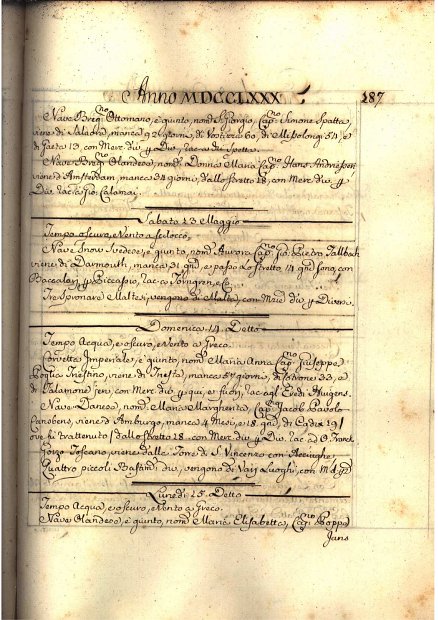 Anno MDCCLXXX 187
Nave Brig.no Ottomano, è giunto, nom.o S. Giorgio, Cap.no Simone Spatta,
viene di Salaora, manca 92 giorni, di Vostizza 60, di Missolongi 54, e
di Gaeta 13, con Merc. div. p Div.
Nave Brig.no Olandese, nom. Donna Maria Cap.no Hans Andriessen
viene d'Amsterdam, manca 34 giorni, dallo stretto 18, con Merc. div. p
Div. rac. a Gio. Calamai.
Sabato 23 Maggio
Tempo oscuro, e Vento a Scilocco,
Nave Snow Svedese, è giunto, nom. Aurora Cap.no Gio. Pietro Fallbach
viene di Darmouth, manca 31 gni. e passò lo Stretto 14 gni. sono, con
Baccalari p
Tre Spronare Maltesi, vengono di Malta, con Merc. div. p Diversi.
Domenica 24 Detto
Tempo Acqua, e oscuro, e Vento a Greco.
Corvetta Imperiale, è giunto, nom. Maria Anna Cap.no Giuseppe
Triestino, viene di Trieste, manca 57 giorni, di Cotrone 33, e
di Talamone jeri, con Merc. div. p qui, e fuori, rac. agl' Eredi Huigens.
Nave Danese, nom. Maria Margherita, Cap.no Jacob Pavolo
viene d'Amburgo, manca 4 Mesi, e 18 gni, di Cadice 19 (
ove si è trattenuto) dallo stretto 28. con Merc. div. p Div. rac. ad
Gozzo Toscano, viene dalla Torre di S. Vincenzo con Acciughe,
Quattro piccoli Bastim. div. vengono di Varj Luoghi, con M. d. p D.
Lunedì 25 Detto
Tempo Acqua, e oscuro, e Vento a Greco.
Nave Olandese, è giunto, nom. Maria Elisabetta, Cap.no Poppo
Jans